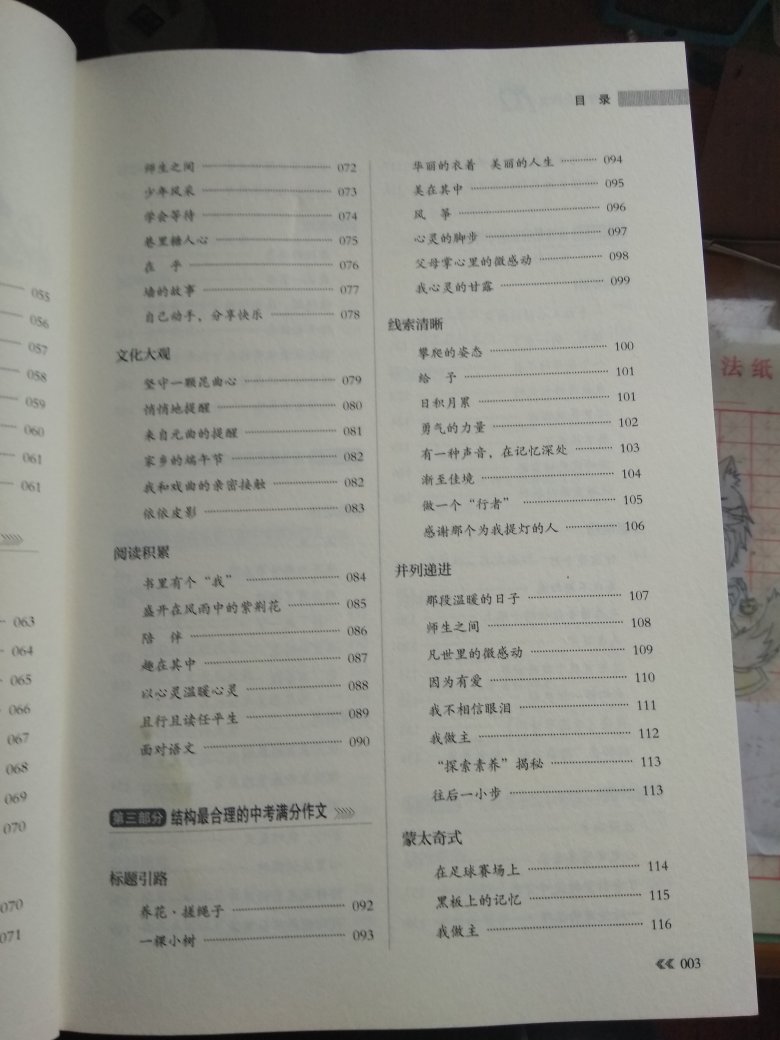 目 录
055
056
057
058
059
060
061
061
063
064
065
066
067
068
069
070
070
071
师生之间 072
少年风采 073
学会等待 074
巷里糖人心 075
在 乎 076
墙的故事 077
自己动手，分享快乐 078
文化大观
坚守一颗昆曲心 079
悄悄地提醒 080
来自元曲的提醒 081
家乡的端午节 082
我和戏曲的亲密接触 082
依依皮影 083
阅读积累
书里有个“我” 084
盛开在风雨中的紫荆花 085
陪 伴 086
趣在其中 087
以心灵温暖心灵 088
且行且读任平生 089
面对语文 090
第三部分 结构最合理的中考满分作文
标题引路
养花·搓绳子 092
一棵小树 093
华丽的衣着 美丽的人生 094
美在其中 095
风 筝 096
心灵的脚步 097
父母掌心里的微感动 098
我心灵的甘露 099
线索清晰
攀爬的姿态 100
给 予 101
日积月累 101
勇气的力量 102
有一种声音，在记忆深处 103
渐至佳境 104
做一个“行者” 105
感谢那个为我提灯的人 106
并列递进
那段温暖的日子 107
师生之间 108
凡世里的微感动 109
因为有爱 110
我不相信眼泪 111
我做主 112
“探索素养”揭秘 113
往后一小步 113
蒙太奇式
在足球赛场上 114
黑板上的记忆 115
我做主 116
003
法纸